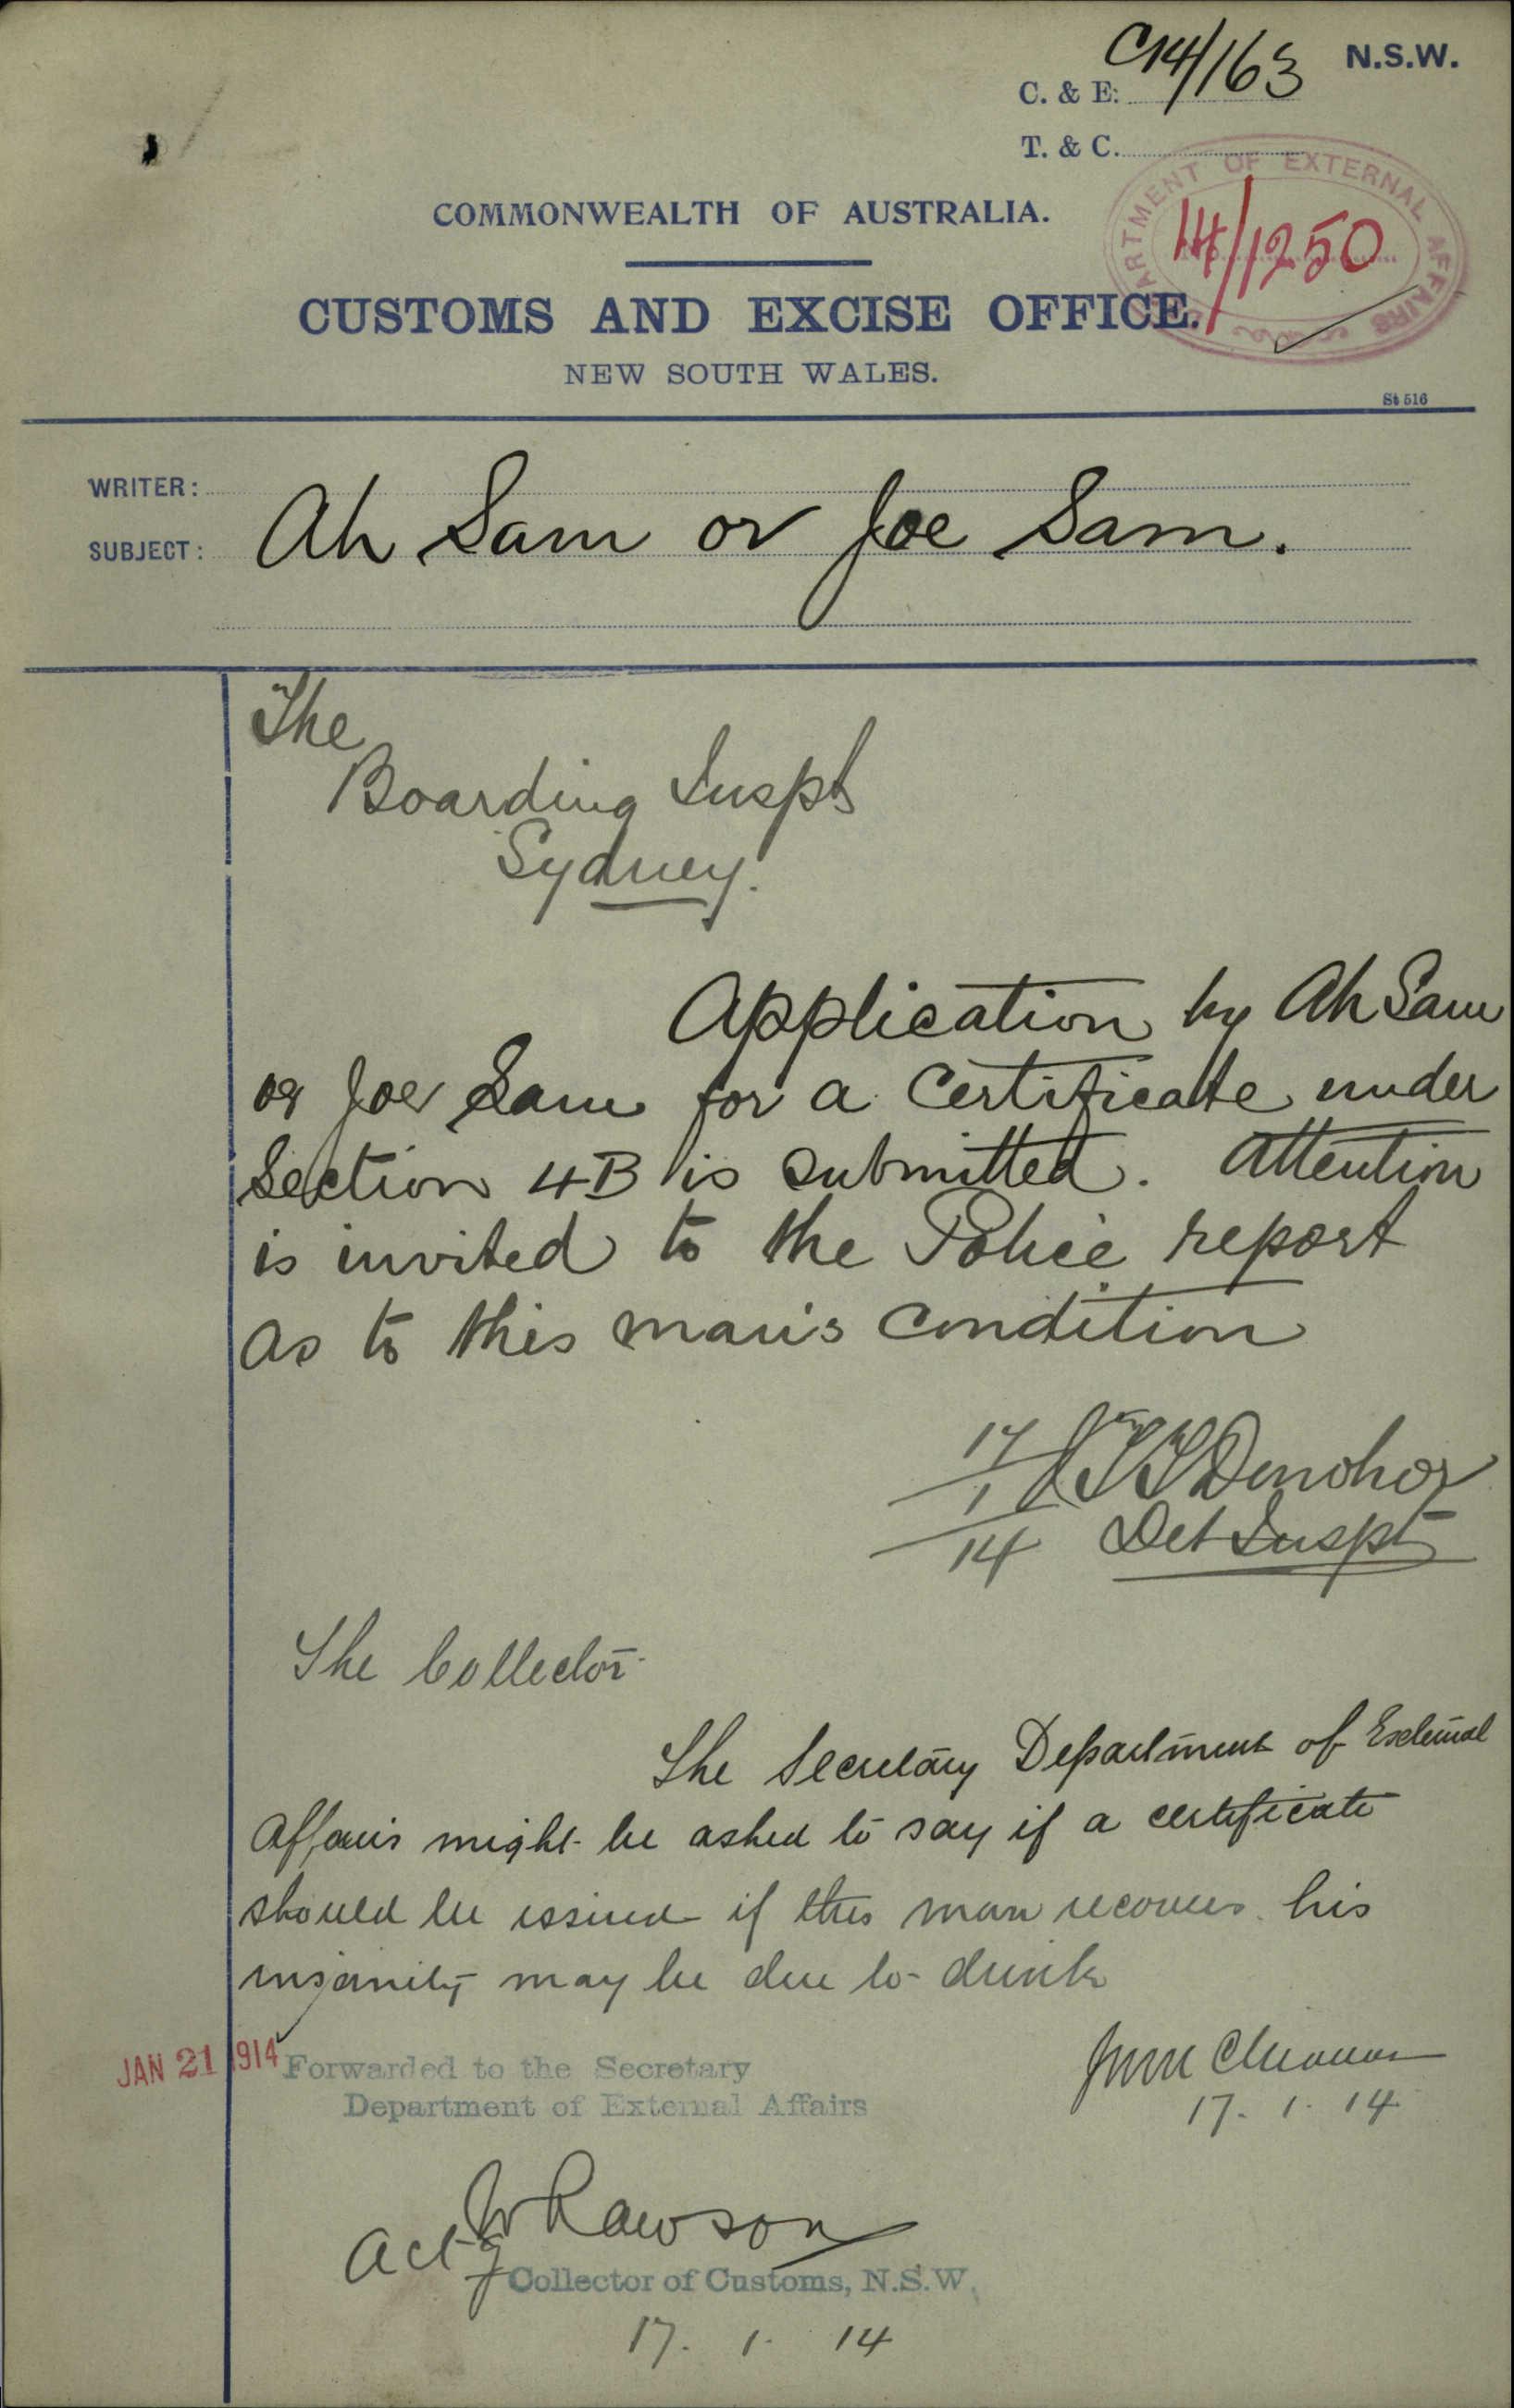 C14/163 N.S.W.
C. & E.
T. & C.
DEPARTMENT OF EXTERNAL AFFAIRS
14/1250
COMMONWEALTH OF AUSTRALIA.
CUSTOMS AND EXCISE OFFICE.
NEW SOUTH WALES.
St 516
WRITER:
SUBJECT: Ah Sam or Joe Sam.
The
Boarding Inspt
Sydney.
Application by Ah Sam
or Joe Sam for a Certificate under
Section 4B is submitted. Attention
is invited to the Police report
as to this man's condition
17/1/14 Donohoe
Det Inspt
The Collector
The Secretary Department of External
Affairs might be asked to say if a certificate
should be issued if this man recovers. his
insanity may be due to drink
JAN 21 1914
Forwarded to the Secretary
Department of External Affairs
17. 1. 14
W Rawson
Actg Collector of Customs, N.S.W.
17. 1. 14